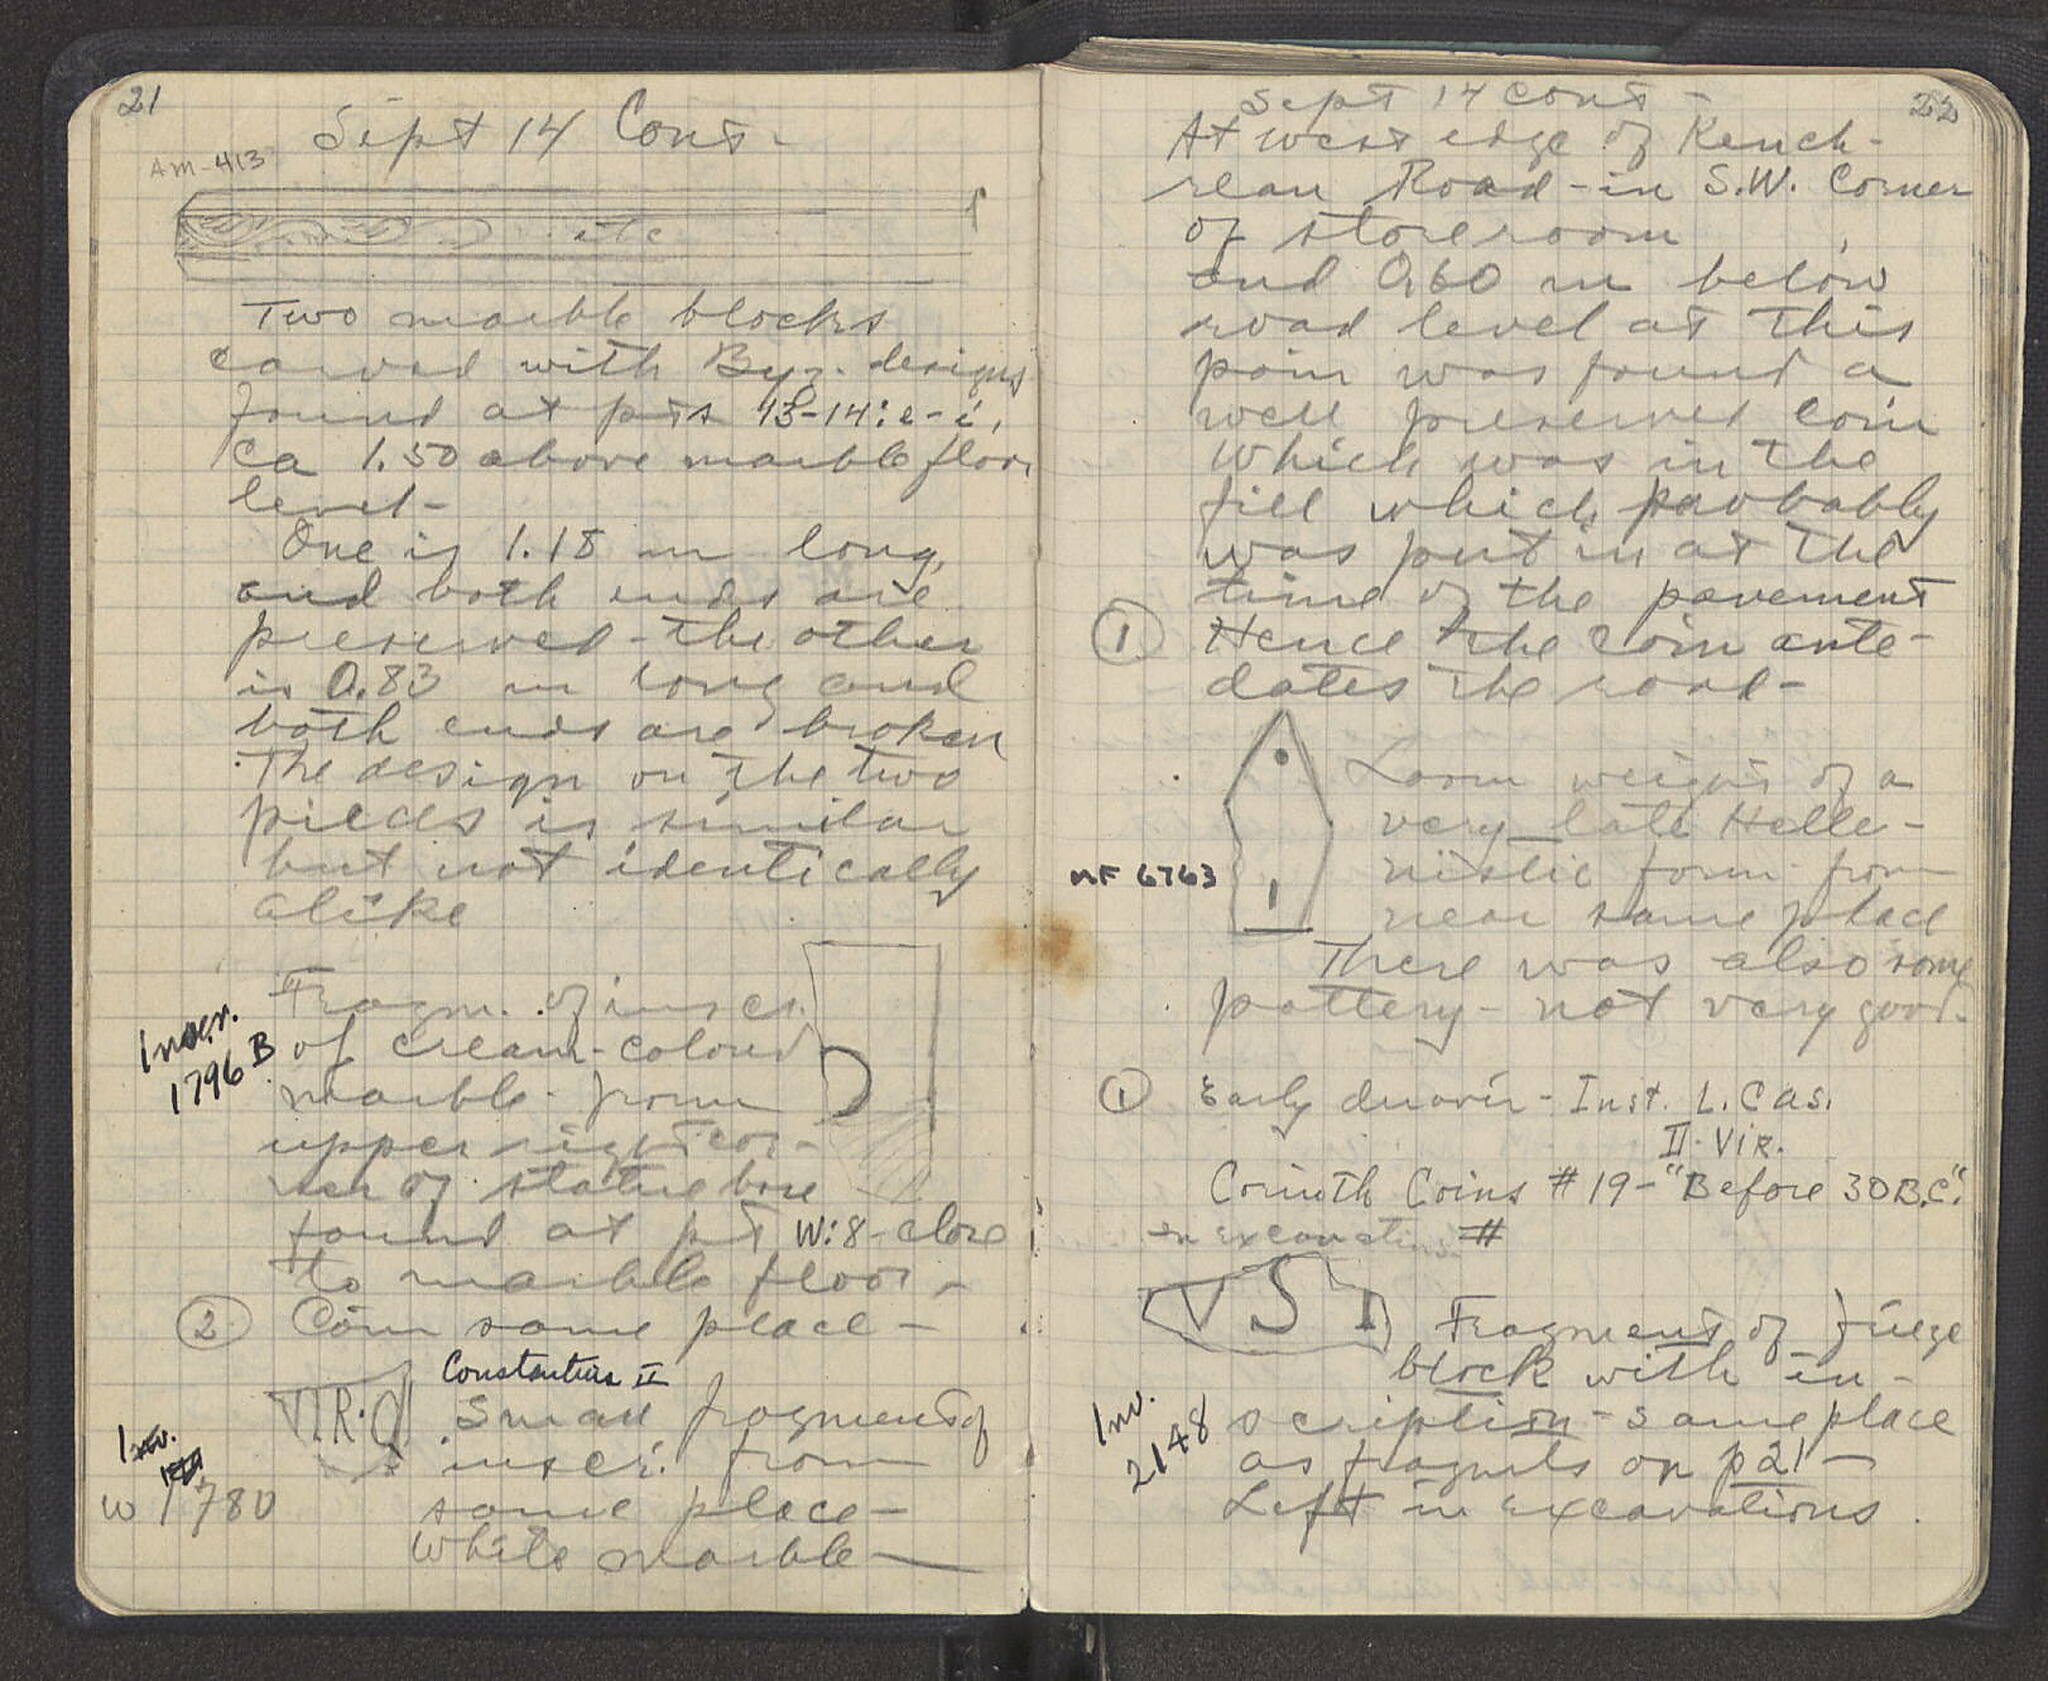 21
Sept 14 Cont-
AM-413
etc
Two marble blocks
carved with Byz. designs
found at pts 13-14:e-i,
ca 1.50 above marble floor
level-
One is 1.18 m long,
and both ends are
preserved-the other
is 0.83 m long and
both ends are broken
The design on the two
pieces is similar
but not identically
alike
Inscr.
1796 B
Fragm. of inscr.
of cream-colored
marble-from
upper right cor-
ner of statue base
found at pt W:8-close
to marble floor-
② Coin same place-
Constantius II
VIR·C
Small fragment of
inscr. from
same place-
White marble-
Inv.
1780
22
Sept 14 cont-
At west edge of Kench-
rean Road-in S.W. Corner
of storeroom
and 0.60 m below
road level at this
poin was found a
well preserved coin
which was in the
fill which probably
was put in at the
time of the pavement
① Hence the coin ante-
dates the road-
Loom weight of a
very late Helle-
nistic form from
near same place
MF 6763
There was also some
pottery-not very good.
① Early duovir-Inst. L. Cas.
II-Vir.
Corinth Coins #19-"Before 30 B.C".
in excavations #
VST
Fragment of frieze
block with in-
scription-same place
as fragmts on p21-
Left in excavations.
Inv.
2148